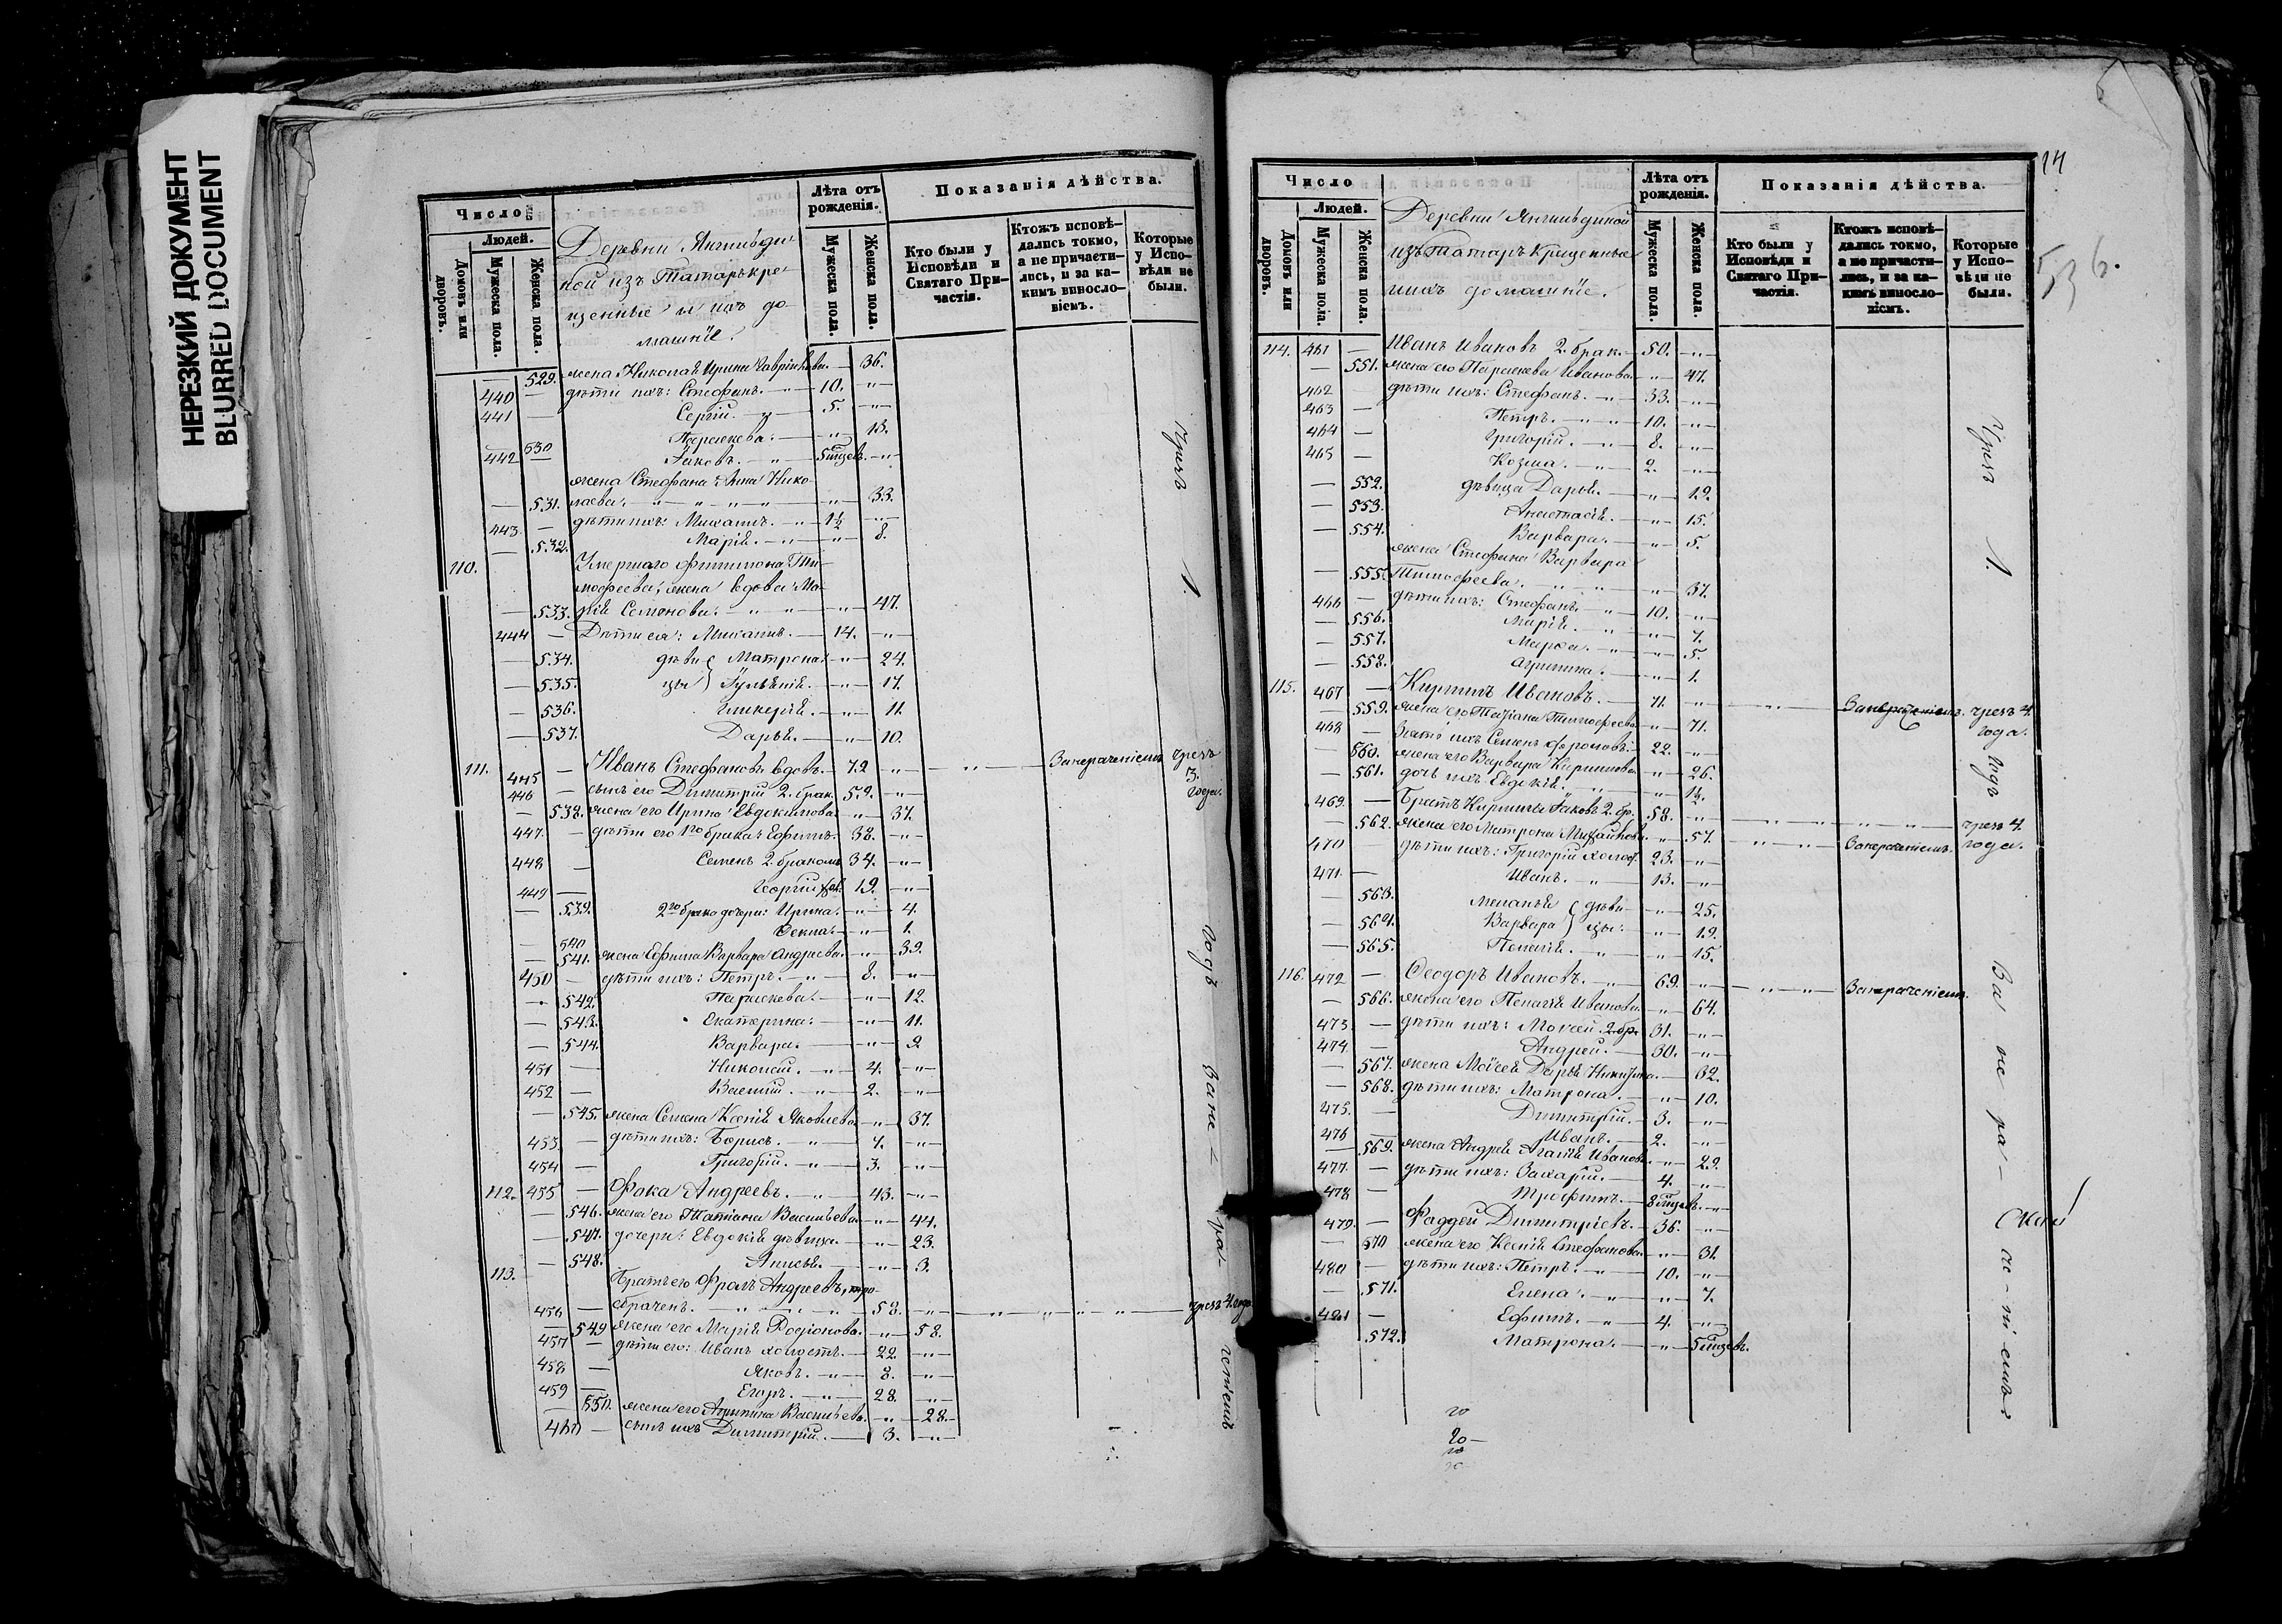 НЕРЕЗКИЙ ДОКУМЕНТ
BLURRED DOCUMENT
Число
Людей.
Домовъ или дворовъ.
Мужеска пола.
Женска пола.
Деревни Янгильди-
ной изъ Татаръ кре-
щенные и ихъ до-
машніе.
Лѣта отъ рожденія.
Мужеска пола.
Женска пола.
Показанія дѣйства.
Кто были у Исповѣди и Святаго При-частія.
Ктожъ исповѣ-дались токмо, а не причасти-лись, и за ка-кимъ виносло-віемъ.
Которые у Испо-вѣди не были.
— 529. жена Николая Ирина Гаврилова. — 36.
440 — дѣти ихъ: Стефанъ. — 10. —
441 — Сергій. — 5. —
530 Параскева. — 13.
442 — Іаковъ. — 5 мцев. —
жена Стефана Анна Нико-
— 531. лаева. — 33.
443 — дѣти ихъ: Михаилъ. — 1½ —
— 532. Марія. — 8.
110. Умершаго Филимона Ти-
мофеева, жена вдова Ма-
— 533. рія Семенова. — 47.
444 — Дѣти ея: Михаилъ. — 14. —
— 534. дѣви- Матрона. — 24.
— 535. цы Іуліанія. — 17.
— 536. Гликерія. — 11.
— 537. Дарья. — 10.
111. 445 — Иванъ Стефановъ вдовъ. — 72 — За нераченіемъ чрезъ 3. года.
446 — сынъ его Димитрій 2. брак. 52. —
— 538. жена его Ирина Евдокимова. — 37.
447. — дѣти его 1го брака: Ефимъ. 38. —
448 — Семенъ 2. бракомъ 34. —
449 — Георгій хол. 19. —
— 539. 2го брака дочери: Ирина. — 4.
— 540 Ѳекла. — 1.
— 541. жена Ефима Варвара Андреева. — 39.
450 — дѣти ихъ: Петръ. — 8. —
— 542. Параскева. — 12.
— 543. Екатерина. — 11.
— 544. Варвара. — 9
451 — Николай. — 4. —
452 — Василій. — 2. —
— 545. жена Семена Ксенія Яковлева — 37.
453 — дѣти ихъ: Борисъ. — 7. —
454 — Григорій. — 3. —
112. 455 — Фока Андреевъ. — 43. —
— 546. жена его Татіана Васильева — 44.
— 547. дочери: Евдокія дѣвица. — 23.
— 548. Анисья. — 3.
113. Братъ его Фролъ Андреевъ, тро-
456 — ебраченъ. — 58. — чрезъ 4. года
— 549 жена его Марія Родіонова. — 58.
457 — дѣти его: Иванъ холостъ. — 22. —
458 — Яковъ. — 8. —
459 — Егоръ. — 28. —
— 550. жена его Агрипина Васильева. — 28. —
460 — сынъ ихъ Димитрій. — 3. —
Чрезъ
1.
годъ
за не-
ра-
ченіемъ
14
536.
Число
Людей.
Домовъ или дворовъ.
Мужеска пола.
Женска пола.
Деревни Янгильдиной
изъ Татаръ Крещенные
и ихъ домашніе.
Лѣта отъ рожденія.
Мужеска пола.
Женска пола.
Показанія дѣйства.
Кто были у Исповѣди и Святаго При-частія.
Ктожъ исповѣ-дались токмо, а не причасти-лись, и за ка-кимъ виносло-віемъ.
Которые у Испо-вѣди не были.
114. 461 — Иванъ Ивановъ 2. брак. — 50. —
— 551. жена его Параскева Иванова — 47.
462 дѣти ихъ: Стефанъ. — 33. —
463 — Петръ. — 10. —
464 — Григорій. — 8. —
465 — Козма. — 2. —
— 552. дѣвица Дарья. — 19.
— 553. Анастасія. — 15.
— 554. Варвара. — 5.
жена Стефана Варвара
— 555. Тимофеева. — 37.
466 — дѣти ихъ: Стефанъ. — 10. —
— 556. Марія. — 7.
— 557. Марѳа. — 5.
— 558. Агрипина. — 1.
115. 467 — Кирилъ Ивановъ. — 71. — За нераченіемъ. чрезъ 4. года.
— 559. жена его Татіана Тимофеева — 71.
468 — Зять ихъ Семенъ Фроловъ. — 22. —
— 560. жена его Варвара Кирилова — 26.
— 561. дочь ихъ Евдокія. — 1½.
469. — Братъ Кирилла Іаковъ 2. бр. 58. — чрезъ 4. года.
— 562. жена его Матрона Михайлова — 57. — За нераченіемъ.
470 — дѣти ихъ: Григорій холос. 23. —
471 — Иванъ. — 13. —
— 563. Меланья дѣви- — 25.
— 564. Варвара цы. — 19.
— 565. Пелагія. — 15.
116. 472 — Ѳеодоръ Ивановъ. — 69. — За нераченіемъ.
— 566. жена его Пелагія Иванова. — 64.
473 — дѣти ихъ: Мойсей 2. бр. 31. —
474 — Андрей. — 30. —
— 567. жена Моѵсея Дарья Никитина — 32.
— 568. дѣти ихъ: Матрона. — 10.
475. — Димитрій. — 3. —
476 — Иванъ. — 2. —
— 569. жена Андрея Агафія Иванова. — 29.
477. — дѣти ихъ: Захарій. — 4. —
478 — Трофимъ. — 8 мцевъ. —
479. — Фаддей Димитріевъ. — 36. —
— 570 жена его Ксенія Стефанова. — 31.
480 — дѣти ихъ: Петръ. — 10. —
— 571. Елена. — 7.
481 — Ефимъ. — 4. —
— 572. Матрона. — 5 мцевъ.
Чрезъ
1.
годъ
За не ра-
че-ні-емъ
20
20 —
20
20